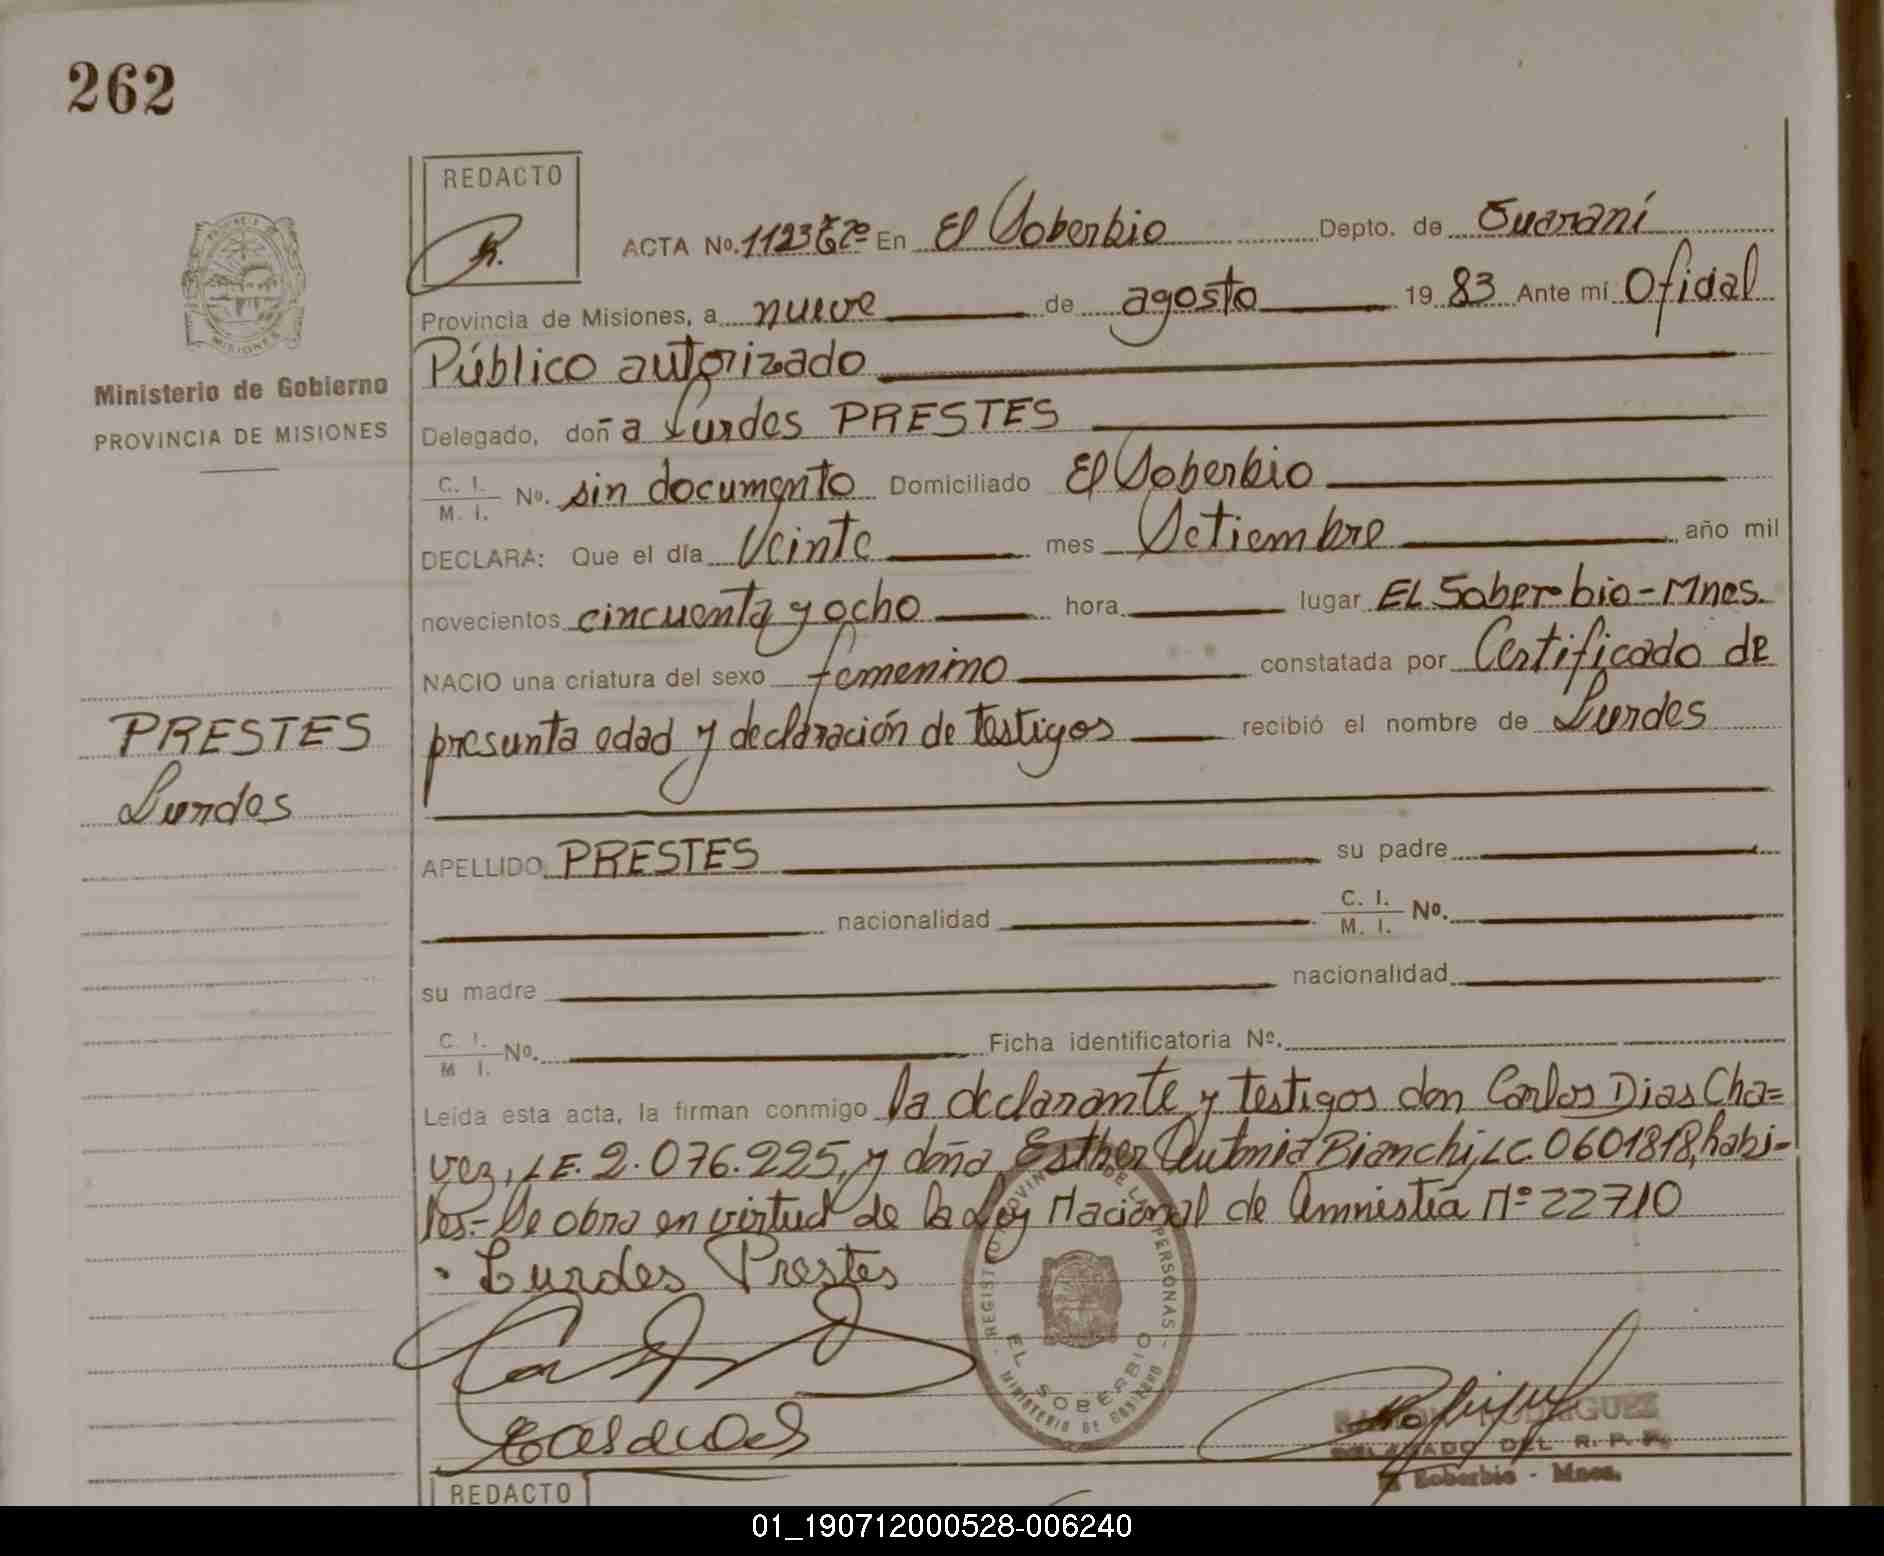 262
REDACTO
ACTA No. 1123 Tº 2º En El Soberbio Depto. de Guaraní
Provincia de Misiones, a nueve de agosto 19 83 Ante mí Oficial
Público autorizado
Ministerio de Gobierno
PROVINCIA DE MISIONES
Delegado, doña Lurdes PRESTES
C. I.
M. I. No. sin documento Domiciliado El Soberbio
DECLARA: Que el día Veinte mes Setiembre año mil
novecientos cincuenta y ocho hora lugar EL Soberbio-Mnes.
NACIO una criatura del sexo femenino constatada por Certificado de
presunta edad y declaración de testigos recibió el nombre de Lurdes
PRESTES
Lurdes
APELLIDO PRESTES su padre
nacionalidad C. I.
M. I. No.
su madre nacionalidad
C. I.
M I. No. Ficha identificatoria Nº.
Leída esta acta, la firman conmigo la declarante y testigos don Carlos Dias Cha=
vez, L.E. 2.076.225, y doña Esther Antonia Bianchi, L.C. 0601818, habi-
les.- Se obra en virtud de la Ley Nacional de Amnistía Nº 22710
Lurdes Prestes
REGISTRO PROVINCIAL DE LAS PERSONAS
MISIONES
EL SOBERBIO
MINISTERIO DE GOBIERNO
RODRIGUEZ
DELEGADO DEL R. P. P.
El Soberbio - Mnes.
REDACTO
01_190712000528-006240